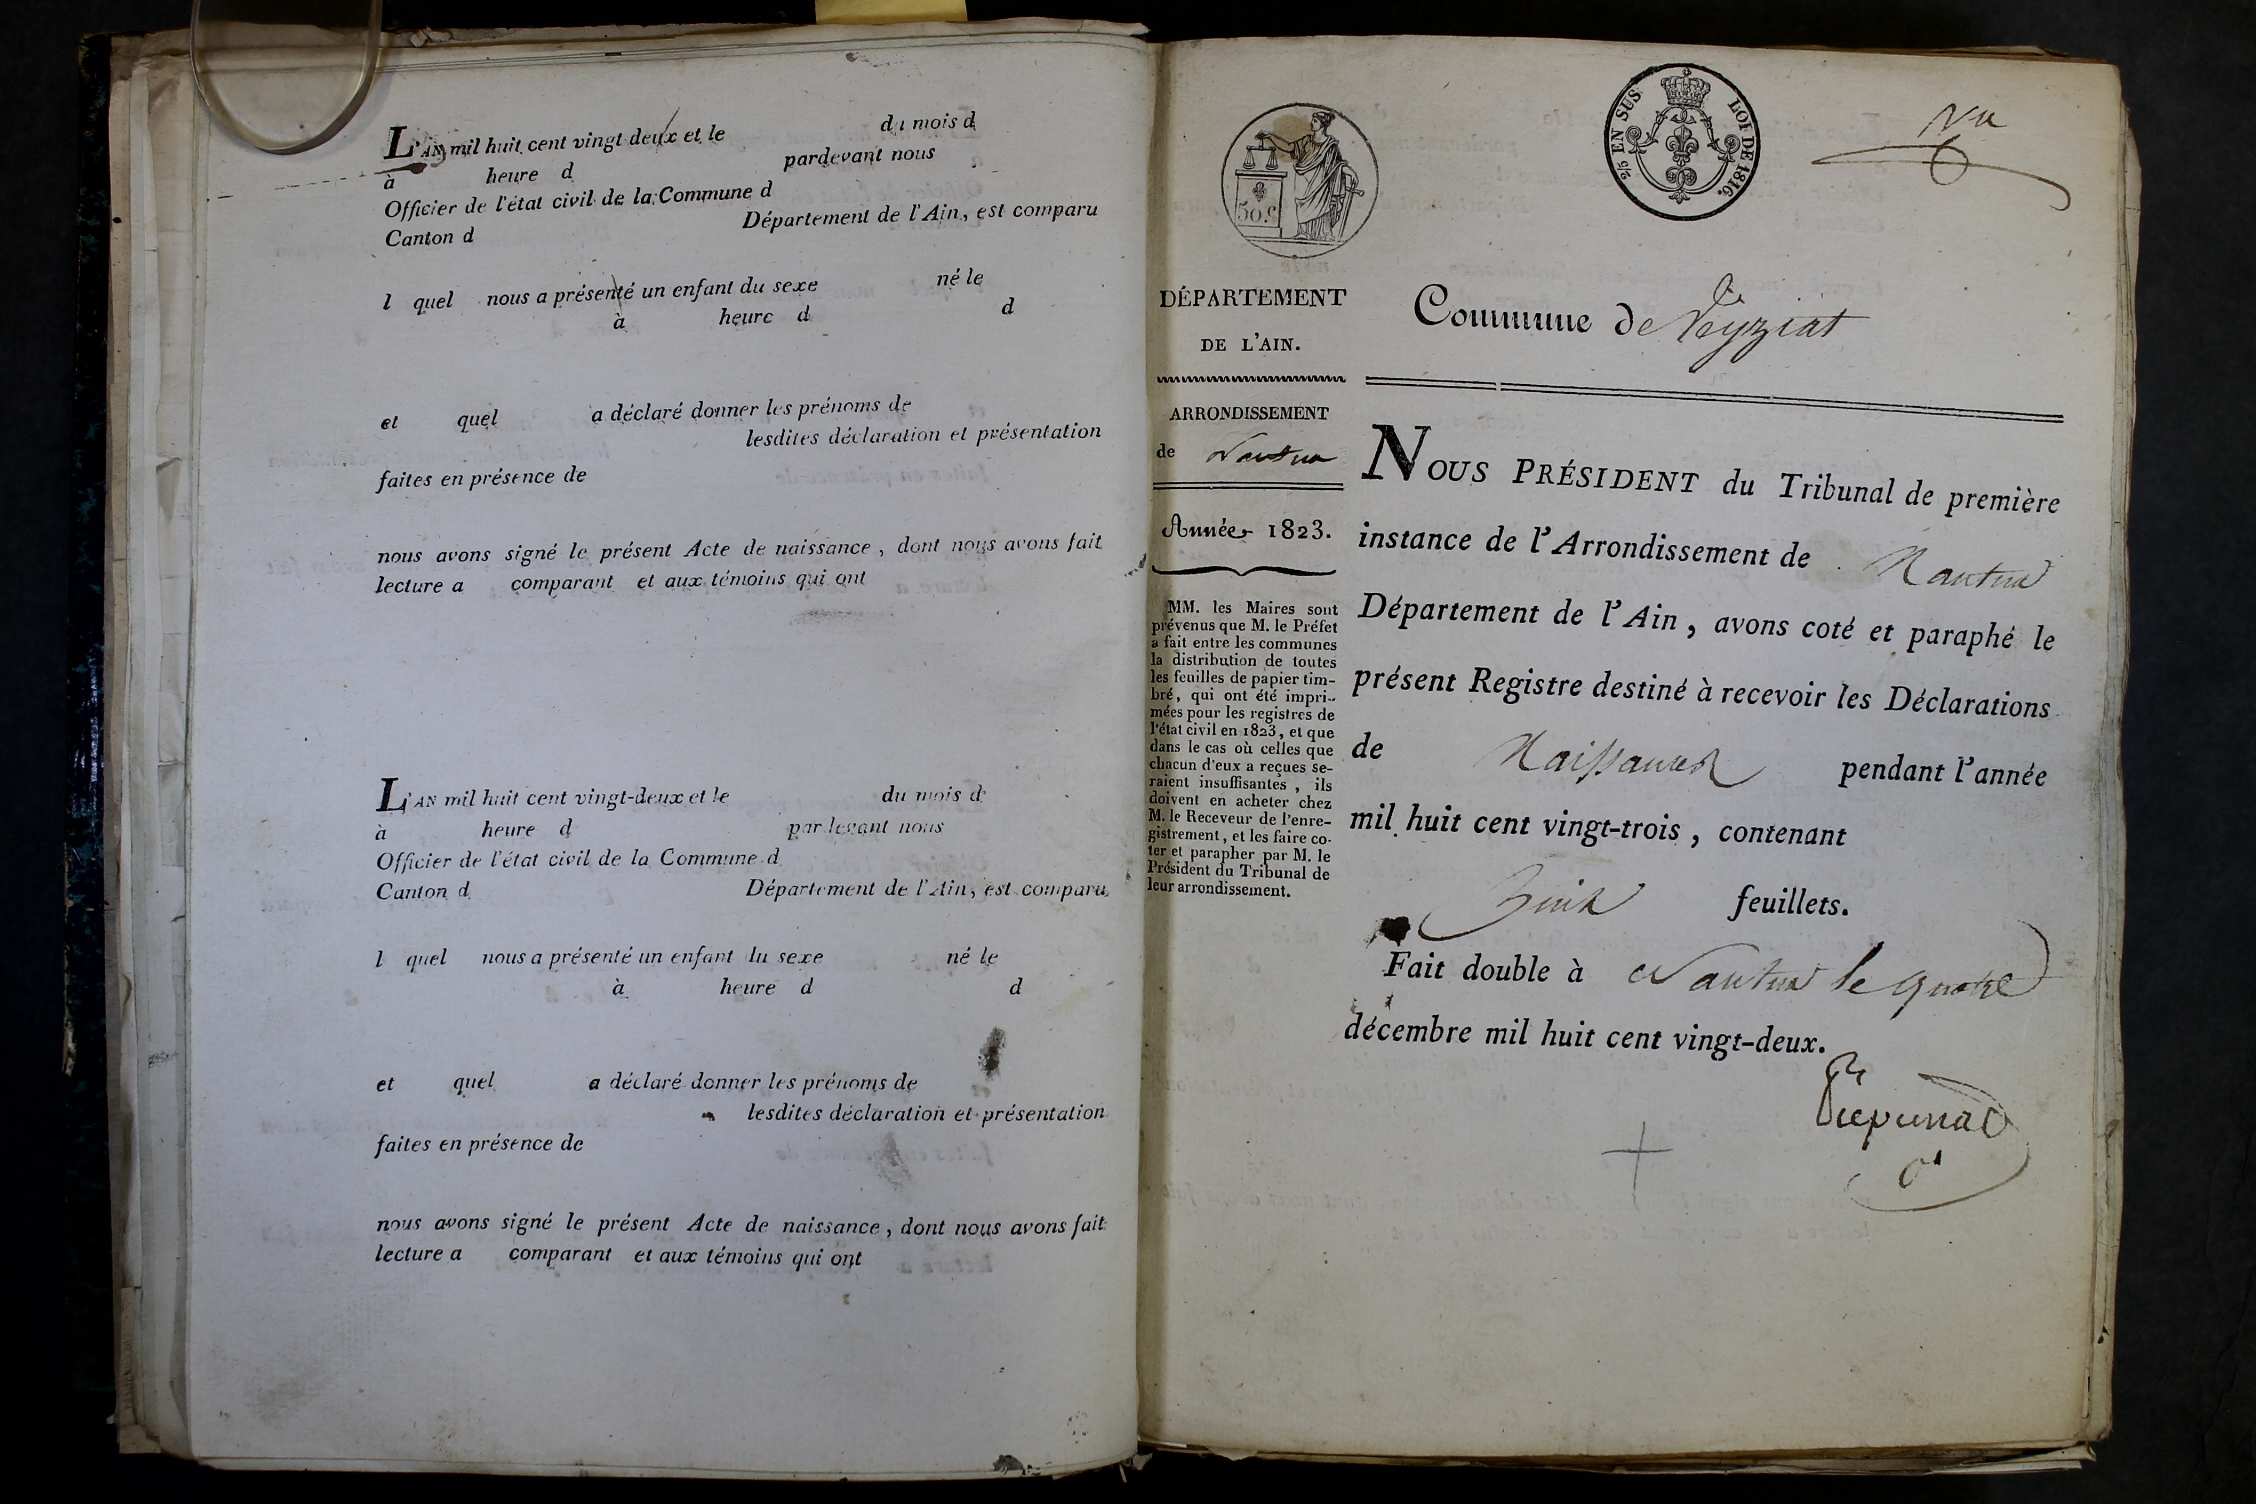 L'AN mil huit cent vingt-deux et le du mois d
à heure d pardevant nous
Officier de l'état civil de la Commune d
Canton d Département de l'Ain, est comparu
l quel nous a présenté un enfant du sexe né le
à heure d d
et quel a déclaré donner les prénoms de
lesdites déclaration et présentation
faites en présence de
nous avons signé le présent Acte de naissance, dont nous avons fait
lecture a comparant et aux témoins qui ont
L'AN mil huit cent vingt-deux et le du mois d
à heure d pardevant nous
Officier de l'état civil de la Commune d
Canton d Département de l'Ain, est comparu
l quel nous a présenté un enfant du sexe né le
à heure d d
et quel a déclaré donner les prénoms de
lesdites déclaration et présentation
faites en présence de
nous avons signé le présent Acte de naissance, dont nous avons fait
lecture a comparant et aux témoins qui ont
50 c
2/5 EN SUS LOI DE 1816.
DÉPARTEMENT
DE L'AIN.
ARRONDISSEMENT
de Nantua
Année 1823.
MM. les Maires sont
prévenus que M. le Préfet
a fait entre les communes
la distribution de toutes
les feuilles de papier tim-
bré, qui ont été impri-
mées pour les registres de
l'état civil en 1823, et que
dans le cas où celles que
chacun d'eux a reçues se-
raient insuffisantes, ils
doivent en acheter chez
M. le Receveur de l'enre-
gistrement, et les faire co-
ter et parapher par M. le
Président du Tribunal de
leur arrondissement.
Commune de Veyziat
NOUS PRÉSIDENT du Tribunal de première
instance de l'Arrondissement de Nantua
Département de l'Ain, avons coté et paraphé le
présent Registre destiné à recevoir les Déclarations
de Naissances pendant l'année
mil huit cent vingt-trois, contenant
huit feuillets.
Fait double à Nantua le quatre
décembre mil huit cent vingt-deux.